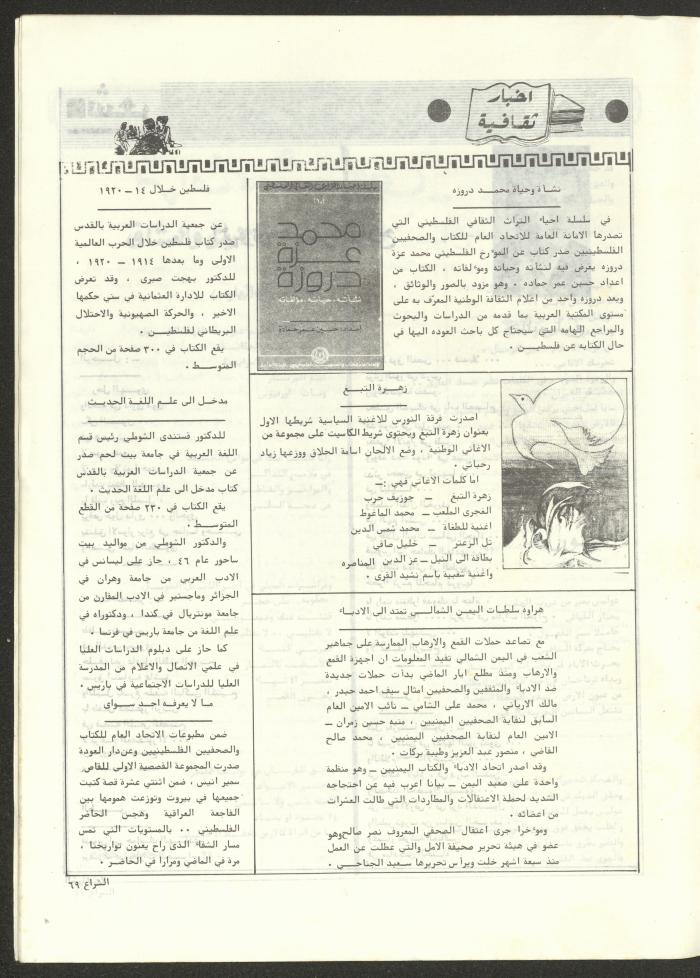 اخبار
ثقافية
نشأة وحياة محمد دروزه
في سلسلة احياء التراث الثقافي الفلسطيني التي
تصدرها الامانة العامة للاتحاد العام للكتاب والصحفيين
الفلسطينيين صدر كتاب عن المؤرخ الفلسطيني محمد عزة
دروزه يعرض فيه لنشأته وحياته ومؤلفاته ، الكتاب من
اعداد حسين عمر حماده . وهو مزود بالصور والوثائق .
ويعد دروزه واحد من اعلام الثقافة الوطنية المعرّف به على
مستوى المكتبة العربية بما قدمه من الدراسات والبحوث
والمراجع الهامه التي سيحتاج كل باحث العوده اليها في
حال الكتابه عن فلسطين .
محمد
عزة
دروزة
نشأته . حياته . مؤلفاته
اعداد : حسين عمر حمادة
زهرة التبغ
اصدرت فرقة النورس للاغنية السياسية شريطها الاول
بعنوان زهرة التبغ ويحتوي شريط الكاسيت على مجموعة من
الاغاني الوطنية ، وضع الالحان اسامة الحلاق ووزعها زياد
رحباني .
اما كلمات الاغاني فهي :ـ
زهرة التبغ ـ جوزيف حرب
الفجري الملعب ـ محمد الماغوط
اغنية للطغاة ـ محمد شمس الدين
تل الزعتر ـ خليل صافي
بطاقة الى النيل ـ عز الدين المناصره
واغنية شعبية باسم نشيد القرى .
هراوة سلطات اليمن الشمالي تمتد الى الادباء
مع تصاعد حملات القمع والارهاب الممارسة على جماهير
الشعب في اليمن الشمالي تفيد المعلومات ان اجهزة القمع
والارهاب ومنذ مطلع ايار الماضي بدأت حملات جديدة
ضد الادباء والمثقفين والصحفيين امثال سيف احمد حيدر ،
مالك الارياني ، محمد علي الشامي ـ نائب الامين العام
السابق لنقابة الصحفيين اليمنيين ، منبه حسين زمران ـ
الامين العام لنقابة الصحفيين اليمنيين ، محمد صالح
القاضي ، منصور عبد العزيز وطيبة بركات .
وقد اصدر اتحاد الادباء والكتاب اليمنيين ـ وهو منظمة
واحدة على صعيد اليمن ـ بيانا اعرب فيه عن احتجاجه
الشديد لحملة الاعتقالات والمطاردات التي طالت العشرات
من اعضائه .
ومؤخرا جرى اعتقال الصحفي المعروف نصر صالح وهو
عضو في هيئة تحرير صحيفة الامل والتي عطلت عن العمل
منذ سبعة اشهر خلت ويرأس تحريرها سعيد الجناحي .
فلسطين خلال ١٤ ـ ١٩٢٠
عن جمعية الدراسات العربية بالقدس
صدر كتاب فلسطين خلال الحرب العالمية
الاولى وما بعدها ١٩١٤ ـ ١٩٢٠ ،
للدكتور بهجت صبري ، وقد تعرض
الكتاب للادارة العثمانية في ستي حكمها
الاخير ، والحركة الصهيونية والاحتلال
البريطاني لفلسطين .
يقع الكتاب في ٣٠٠ صفحة من الحجم
المتوسط .
مدخل الى علم اللغة الحديث
للدكتور قسطندي الشوملي رئيس قسم
اللغة العربية في جامعة بيت لحم صدر
عن جمعية الدراسات العربية بالقدس
كتاب مدخل الى علم اللغة الحديث .
يقع الكتاب في ٢٣٠ صفحة من القطع
المتوسط .
والدكتور الشوملي من مواليد بيت
ساحور عام ٤٦ ، حاز على ليسانس في
الادب العربي من جامعة وهران في
الجزائر وماجستير في الادب المقارن من
جامعة مونتريال في كندا ، ودكتوراه في
علم اللغة من جامعة باريس في فرنسا .
كما حاز على دبلوم الدراسات العليا
في علمي الاتصال والاعلام من المدرسة
العليا للدراسات الاجتماعية في باريس .
ما لا يعرفه احد سواي
ضمن مطبوعات الاتحاد العام للكتاب
والصحفيين الفلسطينيين وعن دار العودة
صدرت المجموعة القصصية الاولى للقاص
سمير انيس ، ضمن اثنتي عشرة قصة كتبت
جميعها في بيروت وتوزعت همومها بين
الفاجعة العراقية وهجس الحاضر
الفلسطيني .. بالمستويات التي تمس
مسار الشقاء الذي راح يعنون تواريخنا ،
مرة في الماضي ومرارا في الحاضر .
الشراع ٦٩